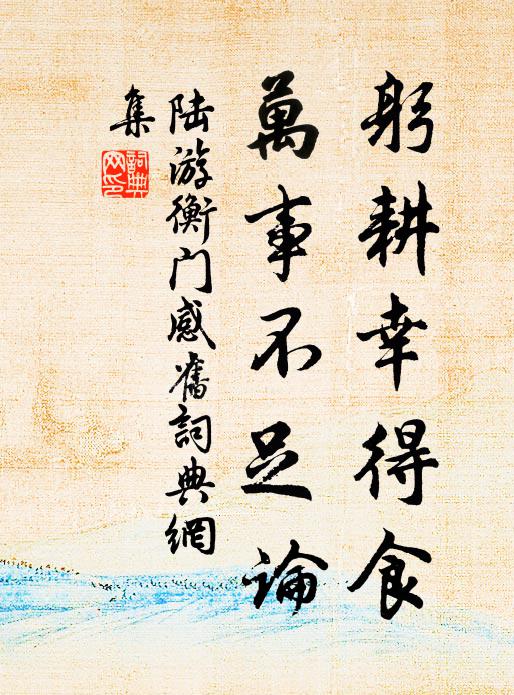 躬耕幸得食
萬事不足論
陆游衡门感舊詞典網
集
詞典
网印